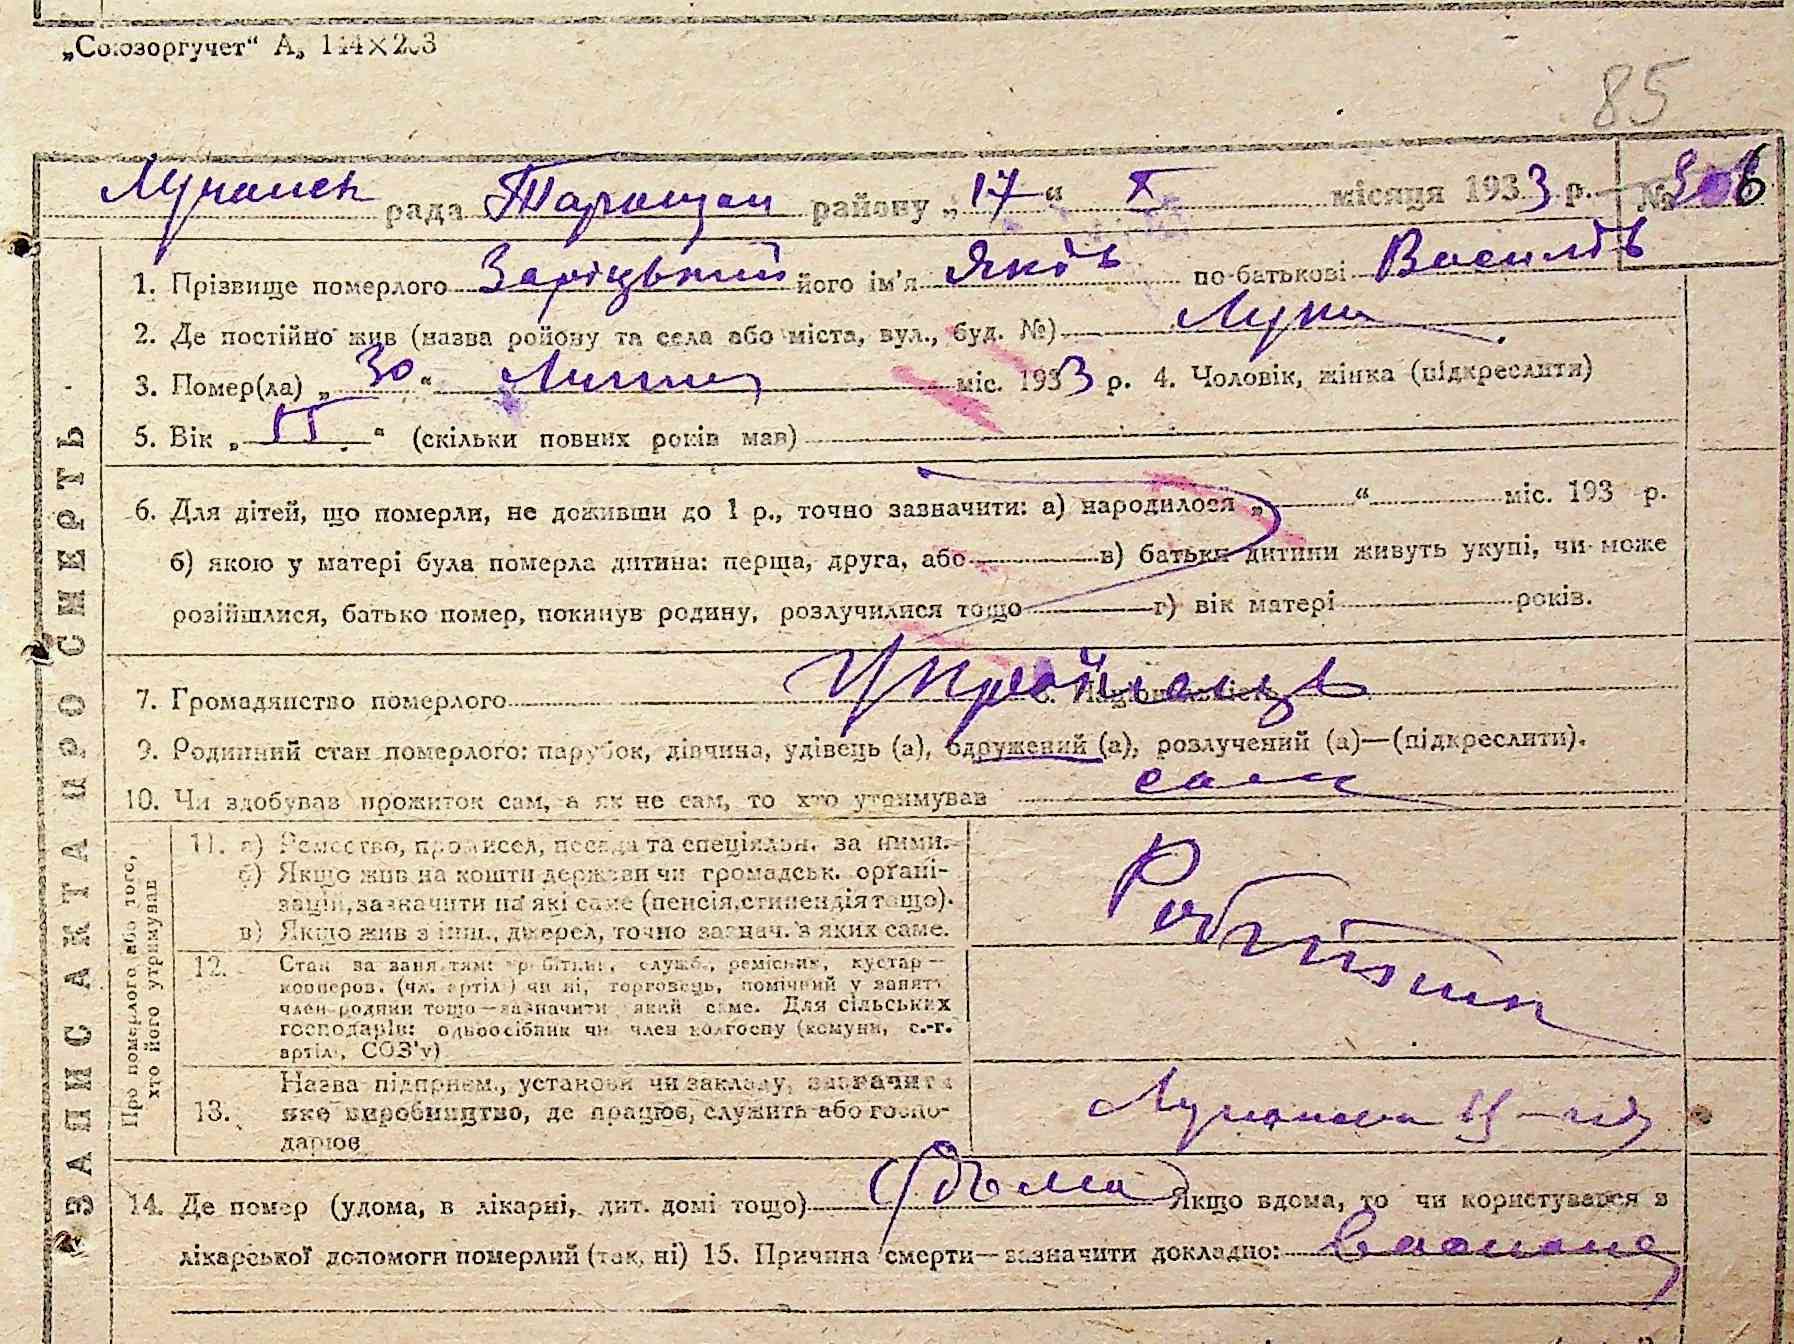 „Союзоргучет“ А₅ 144×203
85
Лучанск рада Таращан району „17“ X місяця 1933 р. №
1. Прізвище померлого Заріцький його ім’я Яків по-батькові Василів
2. Де постійно жив (назва району та села або міста, вул., буд. №) Лука
3. Помер(ла) „30“ Липня міс. 1933 р. 4. Чоловік, жінка (підкреслити)
5. Вік „55“ (скільки повних років мав)
6. Для дітей, що померли, не доживши до 1 р., точно зазначити: а) народилося „ “ міс. 193 р.
б) якою у матері була померла дитина: перша, друга, або в) батьки дитини живуть укупі, чи може
розійшлися, батько помер, покинув родину, розлучилися тощо г) вік матері років.
7. Громадянство померлого 8. Національність Українець
9. Родинний стан померлого: парубок, дівчина, удівець (а), одружений (а), розлучений (а)—(підкреслити).
10. Чи здобував прожиток сам, а як не сам, то хто утримував сам
ЗАПИС АКТА ПРО СМЕРТЬ
Про померлого або того, хто його утримував
11. а) Ремество, промисел, посада та спеціяльн. за ними.
б) Якщо жив на кошти держави чи громадськ. органі-
зацій, зазначити на які саме (пенсія, стипендія тощо).
в) Якщо жив з інш., джерел, точно зазнач. з яких саме.
Робітник
12. Стан за заняттям: робітник, служб., ремісник, кустар—
кооперов. (чл. артілі) чи ні, торговець, помічний у занятт
член-родини тощо—зазначити який саме. Для сільських
господарів: одноосібник чи член колгоспу (комуни, с.-г.
артілі, СОЗ’у)
13. Назва підприєм., установи чи закладу, зазначити
яке виробництво, де працює, служить або госпо-
дарює
14. Де помер (удома, в лікарні, дит. домі тощо) Дома Якщо вдома, то чи користувався з
лікарської допомоги померлий (так, ні) 15. Причина смерти—зазначити докладно: